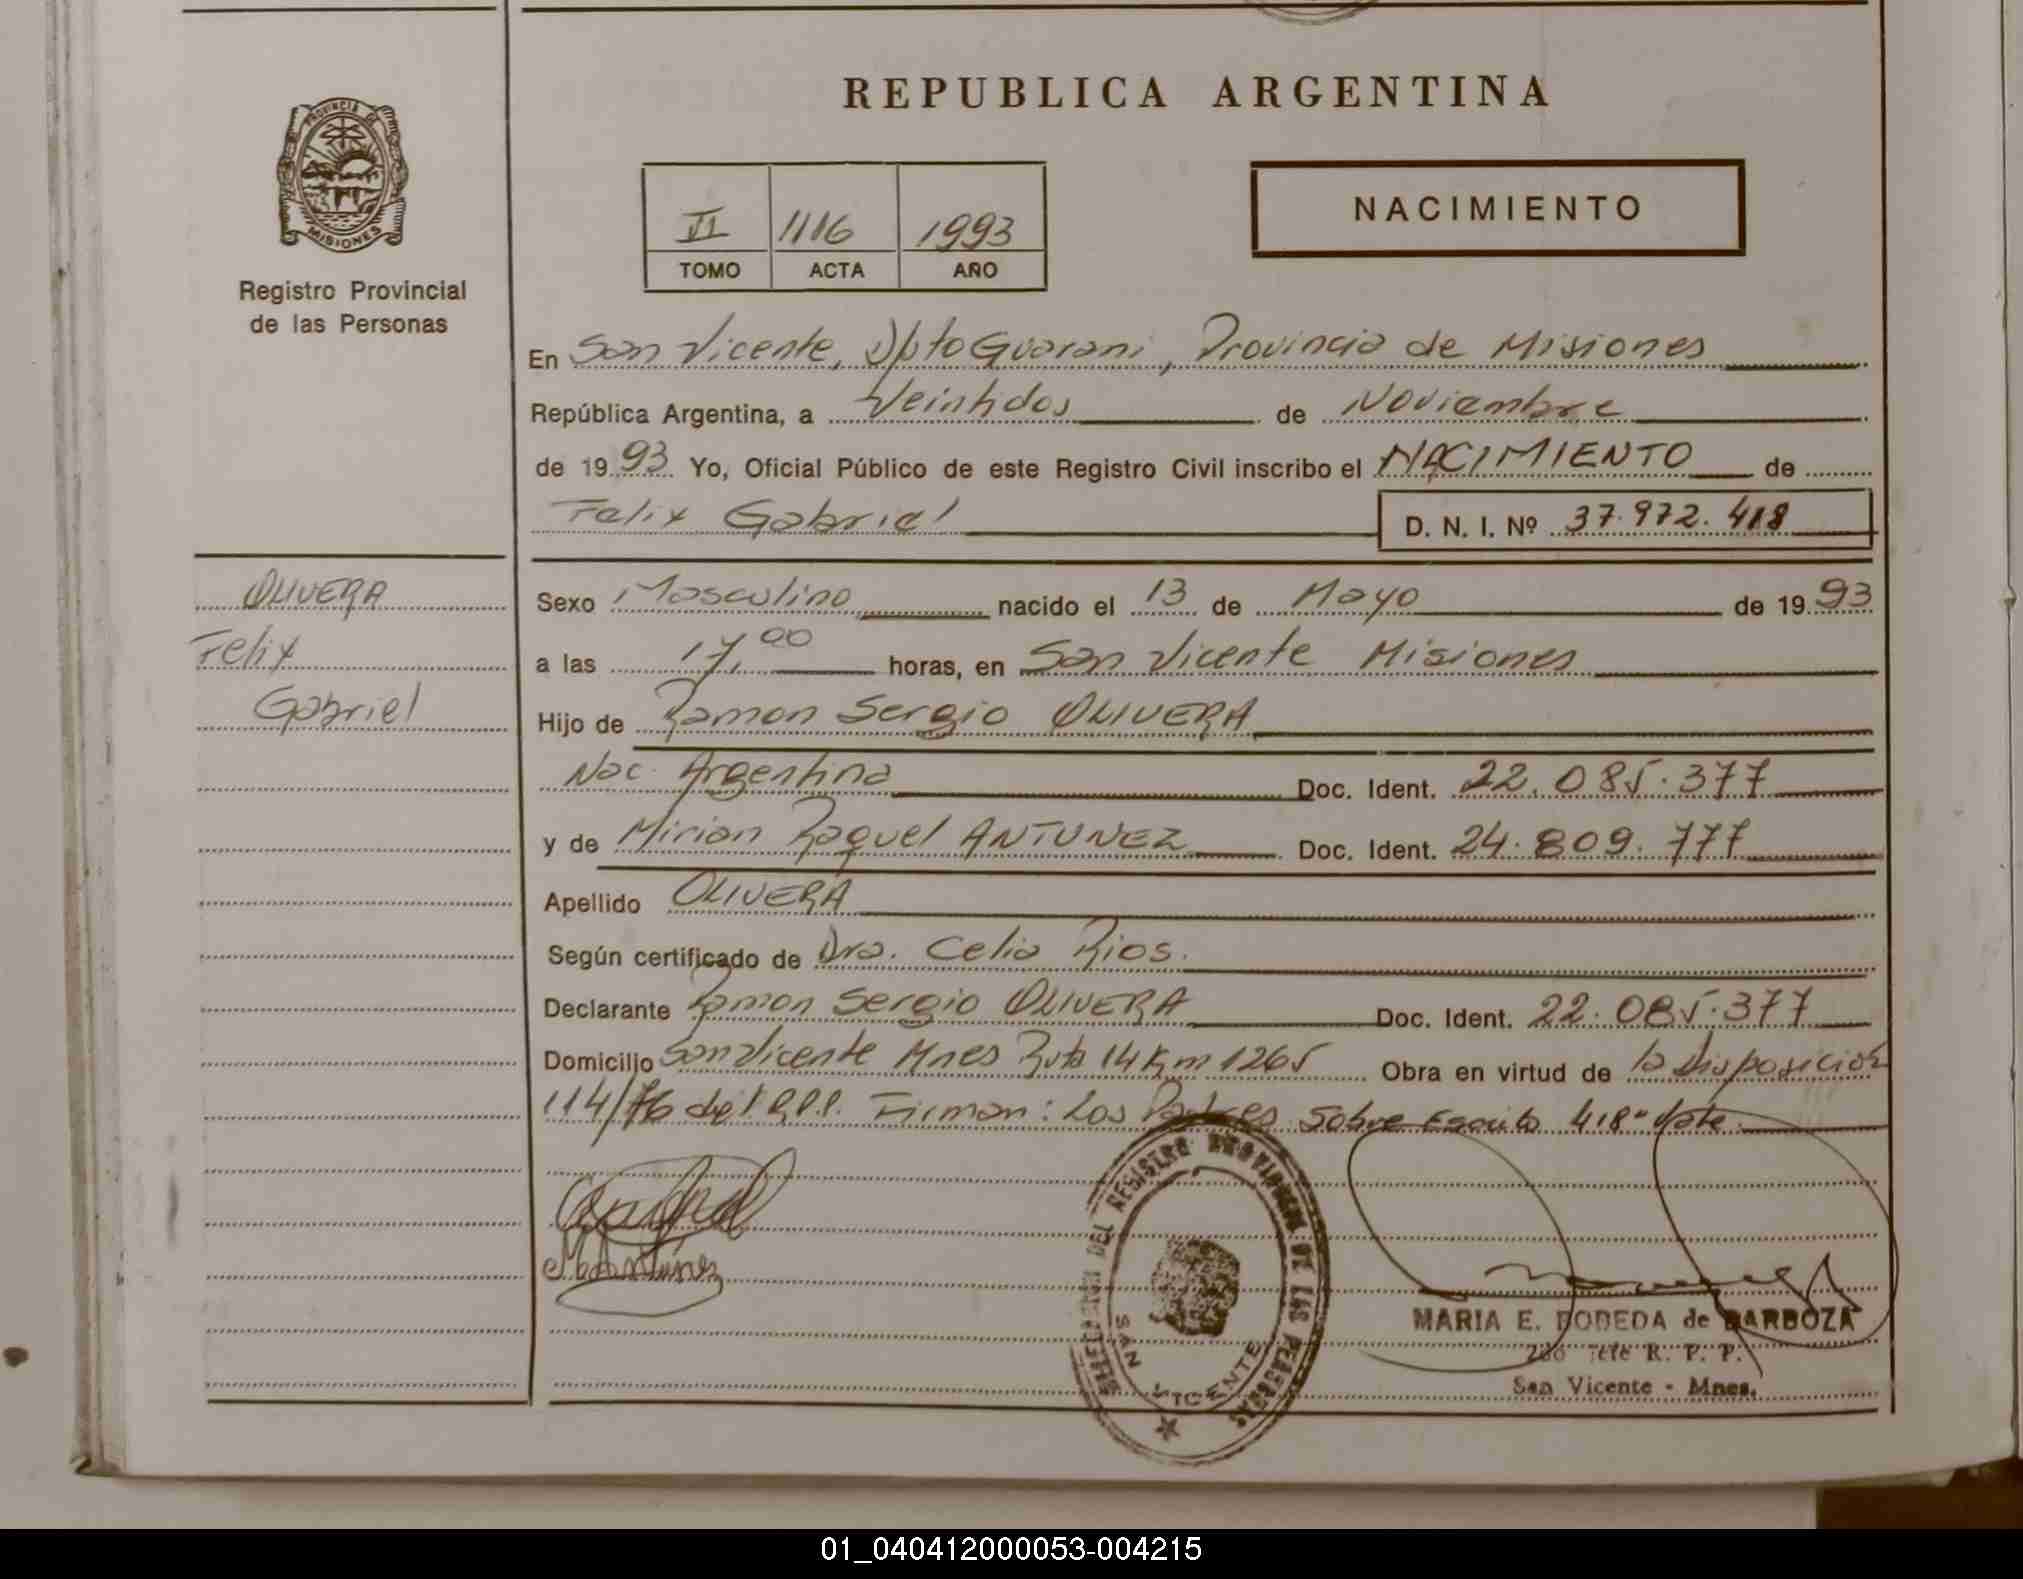 REPUBLICA ARGENTINA
PROVINCIA DE
MISIONES
Registro Provincial
de las Personas
VI 1116 1993
TOMO ACTA AÑO
NACIMIENTO
En San Vicente, Dpto Guarani, Provincia de Misiones
República Argentina, a Veintidos de Noviembre
de 1993 Yo, Oficial Público de este Registro Civil inscribo el NACIMIENTO de
Felix Gabriel D. N. I. Nº 37.972.418
OLIVERA
Felix
Gabriel
Sexo Masculino nacido el 13 de Mayo de 1993
a las 17,00 horas, en San Vicente Misiones
Hijo de Ramon Sergio OLIVERA
Nac. Argentina Doc. Ident. 22.085.377
y de Mirian Raquel ANTUNEZ Doc. Ident. 24.809.777
Apellido OLIVERA
Según certificado de Dra. Celia Rios.
Declarante Ramon Sergio OLIVERA Doc. Ident. 22.085.377
Domicilio San Vicente Mnes Ruta 14 Km 1265 Obra en virtud de la Disposición
114/76 del R.P.P. Firman: Los Padres Sobre Escrito 418" Vale
M Antunez
DEL REGISTRO PROVINCIAL DE LAS PERSONAS
SAN VICENTE
MARIA E. de BARBOZA
R. P. P.
San Vicente - Mnes.
01_040412000053-004215